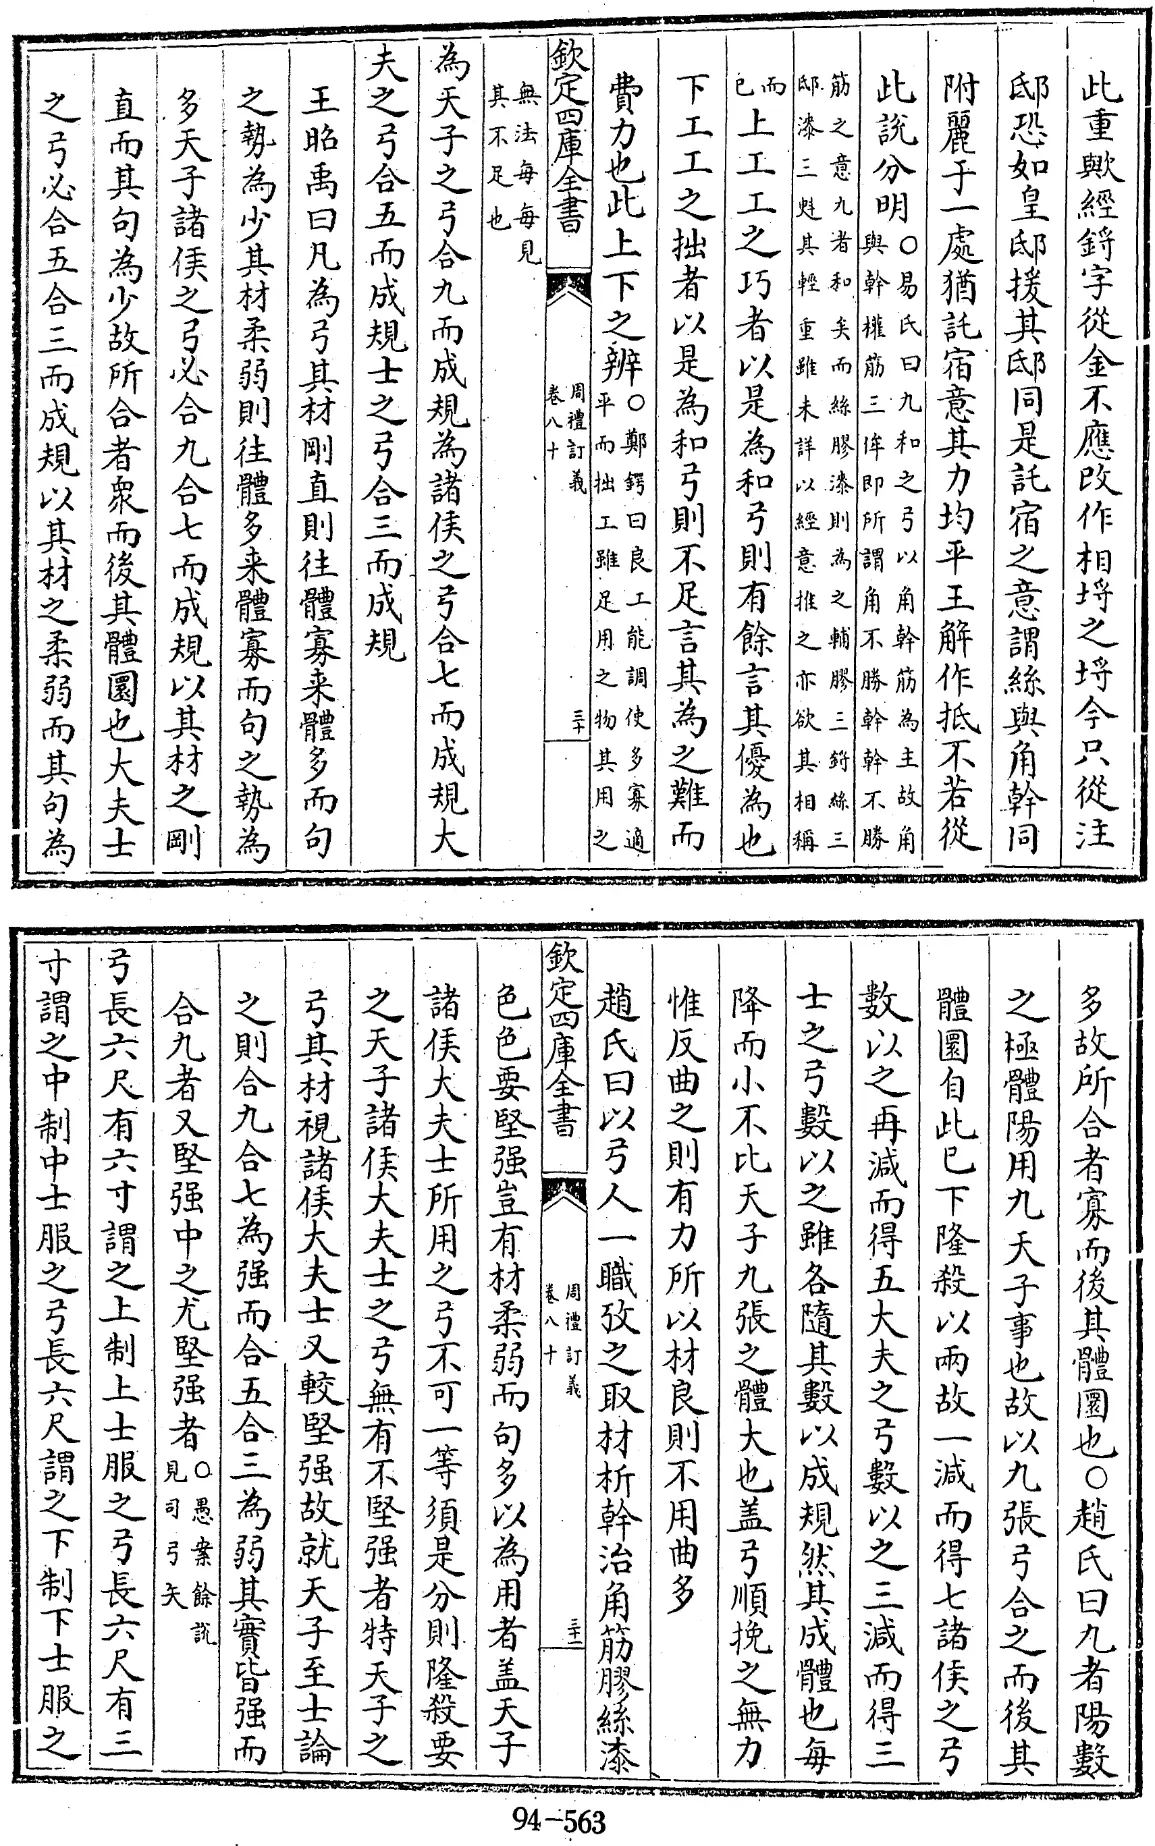 此重歟經鋝字從金不應改作相埒之埒今只從注
邸恐如皇邸援其邸同是託宿之意謂絲與角幹同
附麗于一處猶託宿意其力均平王解作抵不若從
此說分明○易氏曰九和之弓以角幹筋為主故角與幹權筋三侔即所謂角不勝幹幹不勝
筋之意九者和矣而絲膠漆則為之輔膠三鋝絲三邸漆三㪺其輕重雖未詳以經意推之亦欲其相稱
而已上工工之巧者以是為和弓則有餘言其優為也
下工工之拙者以是為和弓則不足言其為之難而
費力也此上下之辨○鄭鍔曰良工能調使多寡適平而拙工雖足用之物其用之
欽定四庫全書
周禮訂義
卷八十
三十
無法每每見其不足也
為天子之弓合九而成規為諸侯之弓合七而成規大
夫之弓合五而成規士之弓合三而成規
王昭禹曰凡為弓其材剛直則往體寡来體多而句
之勢為少其材柔弱則往體多来體寡而句之勢為
多天子諸侯之弓必合九合七而成規以其材之剛
直而其句為少故所合者衆而後其體圜也大夫士
之弓必合五合三而成規以其材之柔弱而其句為
多故所合者寡而後其體圜也○趙氏曰九者陽數
之極體陽用九天子事也故以九張弓合之而後其
體圜自此已下隆殺以兩故一減而得七諸侯之弓
數以之再減而得五大夫之弓數以之三減而得三
士之弓數以之雖各隨其數以成規然其成體也每
降而小不比天子九張之體大也盖弓順挽之無力
惟反曲之則有力所以材良則不用曲多
趙氏曰以弓人一職攷之取材析幹治角筋膠絲漆
欽定四庫全書
周禮訂義
卷八十
三十一
色色要堅强豈有材柔弱而句多以為用者盖天子
諸侯大夫士所用之弓不可一等須是分則隆殺要
之天子諸侯大夫士之弓無有不堅强者特天子之
弓其材視諸侯大夫士又較堅强故就天子至士論
之則合九合七為强而合五合三為弱其實皆强而
合九者又堅强中之尤堅强者○愚案餘說見司弓矢
弓長六尺有六寸謂之上制上士服之弓長六尺有三
寸謂之中制中士服之弓長六尺謂之下制下士服之
94-563